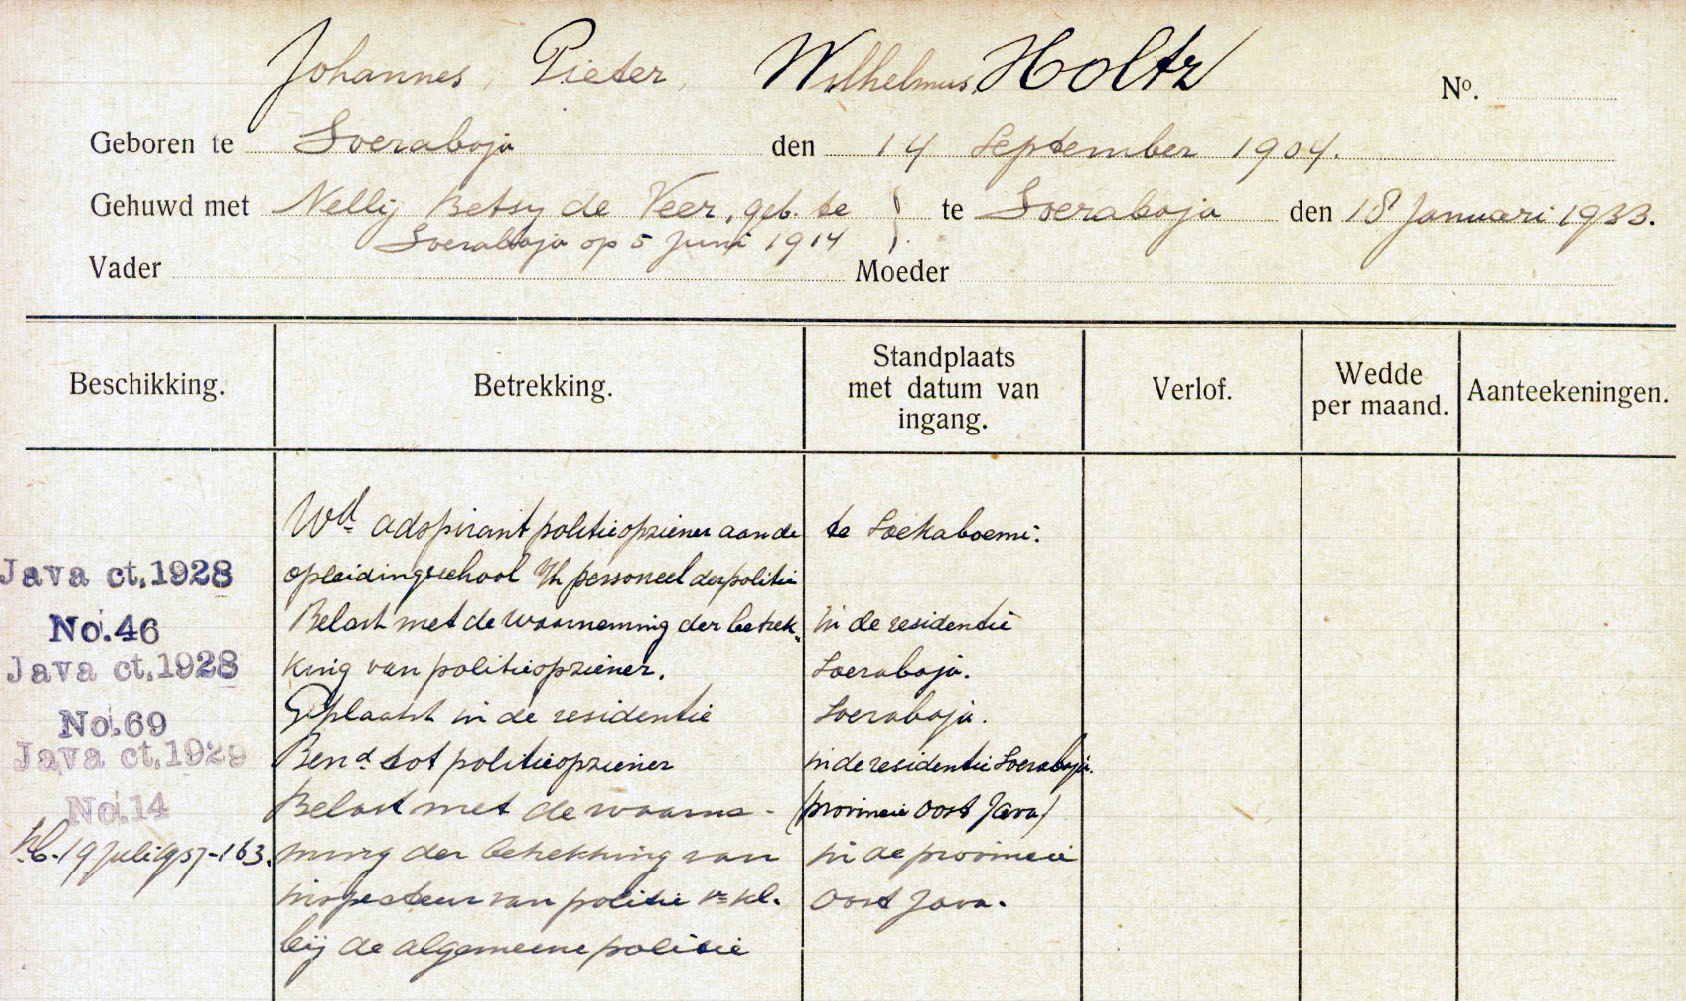 Johannes, Pieter, Wilhelmus, Holtz
No.
Geboren te Soerabaja den 14 September 1904.
Gehuwd met Nellij Betsy de Veer, geb. te } te Soerabaja den 18 Januari 1933.
Soerabaja op 5 Juni 1914
Vader Moeder
Beschikking. Betrekking. Standplaats met datum van ingang. Verlof. Wedde per maand. Aanteekeningen.
Wd adspirant politieopziener aan de te Soekaboemi.
Java ct.1928 opleidingsschool v/h personeel der politie
No.46 Belast met de waarneming der betrek- in de residentie
Java ct.1928 king van politieopziener. Soerabaja.
No.69 Geplaatst in de residentie Soerabaja.
Java ct.1929 Bend tot politieopziener in de residentie Soerabaja.
No.14 Belast met de waarne- (provincie Oost Java)
19 Juli 163. ming der betrekking van in de provincie
inspecteur van politie kl. Oost Java.
bij de algemeene politie